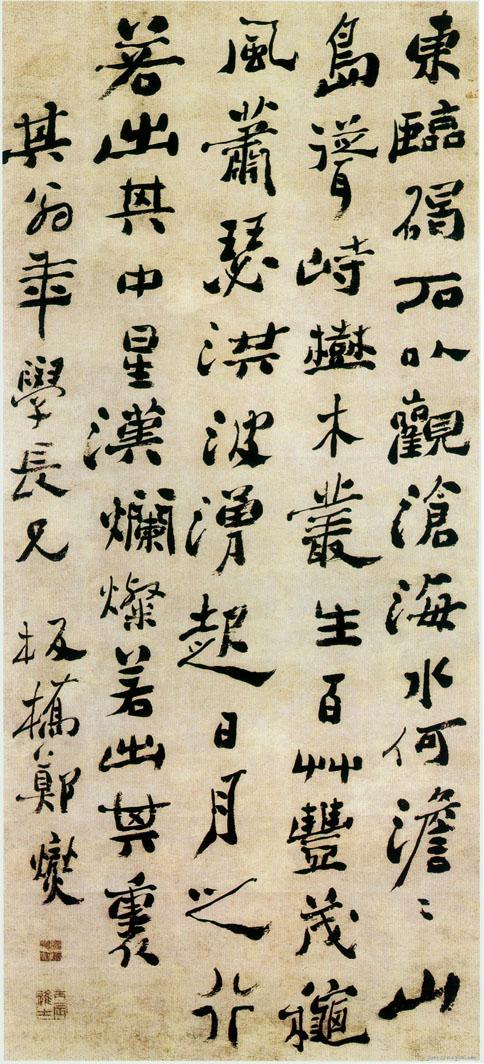 東臨碣石以觀滄海水何澹々山
島聳峙樹木叢生百艸豐茂穐
風蕭瑟洪波湧起日月之行
若出其中星漢爛燦若出其裏
其翁年學長兄 板橋鄭燮
丙辰進士